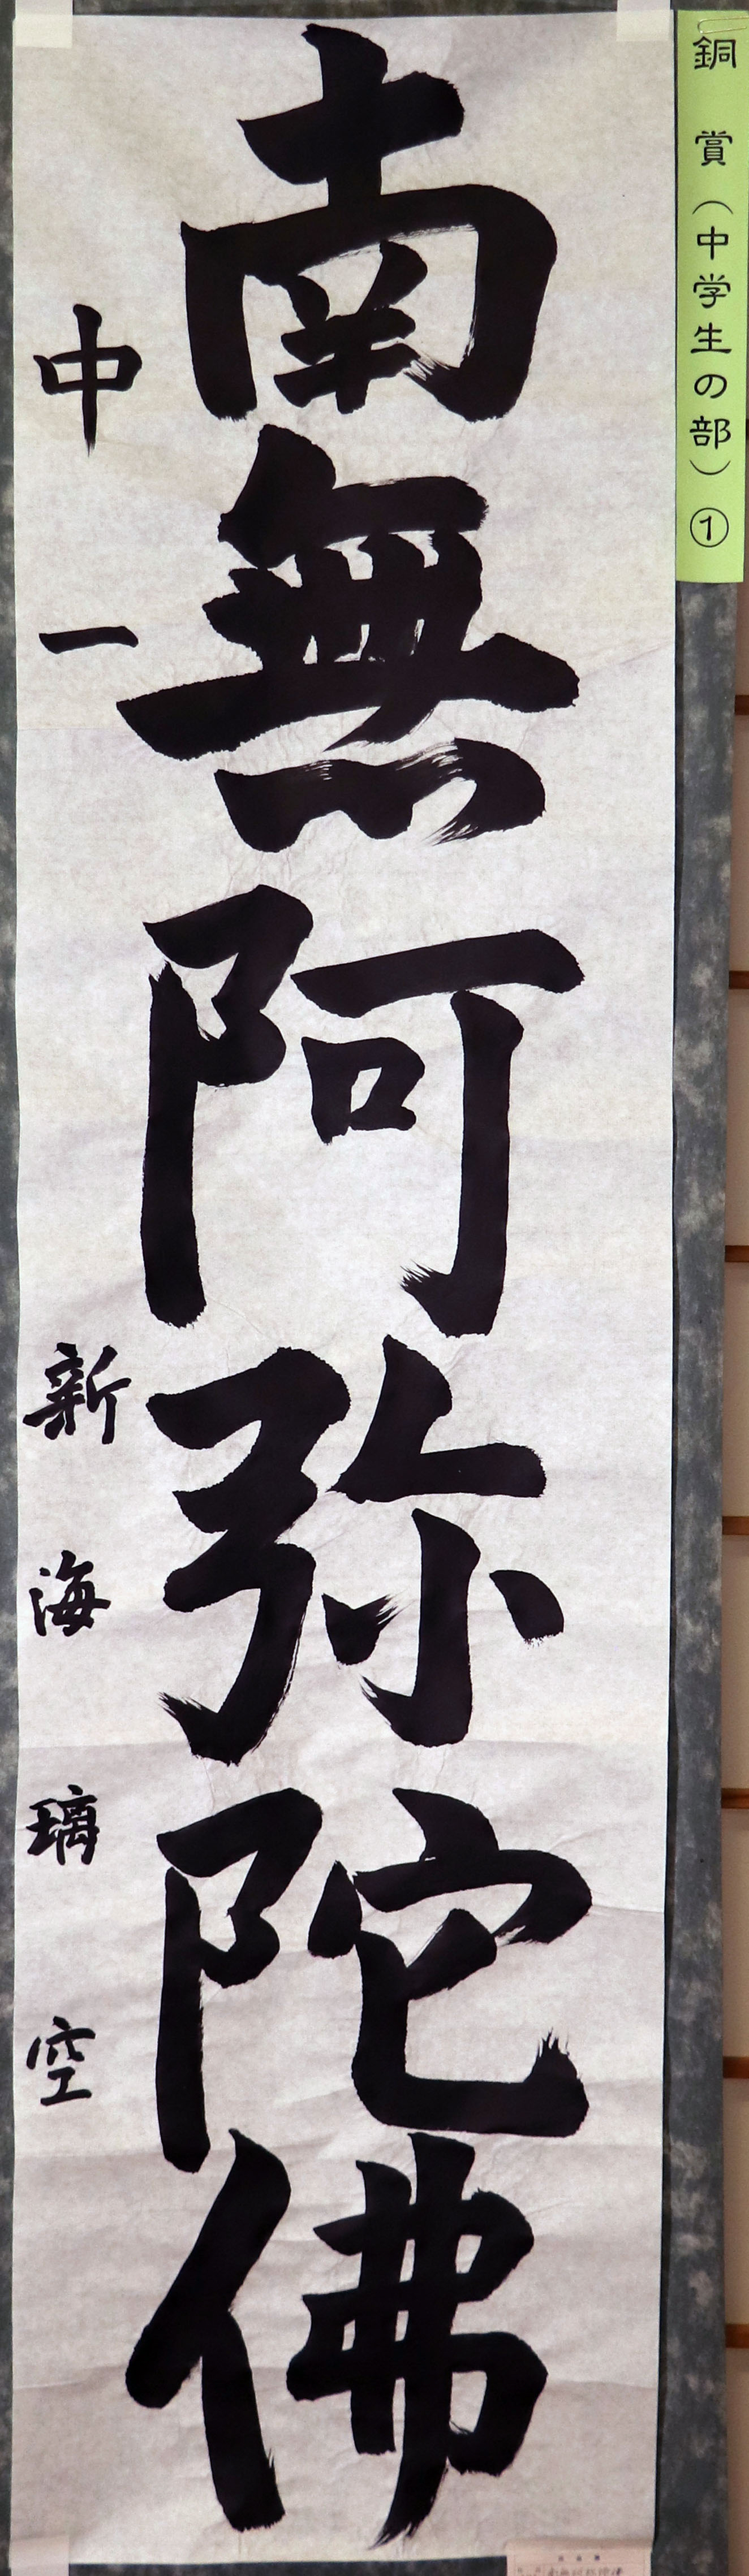 銅賞（中学生の部）①
南無阿弥陀佛
中一 新海璃空